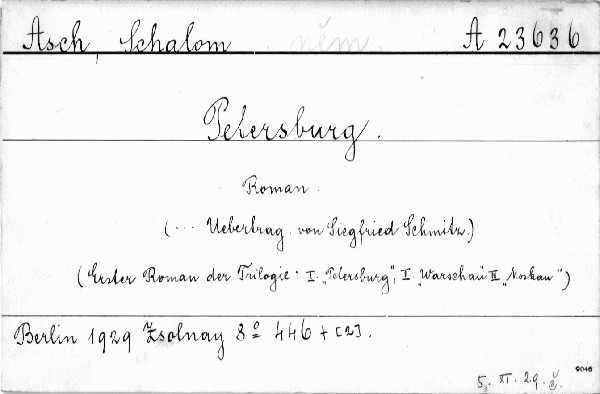 Asch, Schalom něm. A 23636
Petersburg.
Roman.
(... Uebertrag. von Siegfried Schmitz.)
(Erster Roman der Trilogie: I. „Petersburg", I. „Warschau" III „Moskau")
Berlin 1929 Zsolnay 8º 446 + [2].
5. XI. 29. č.
9046